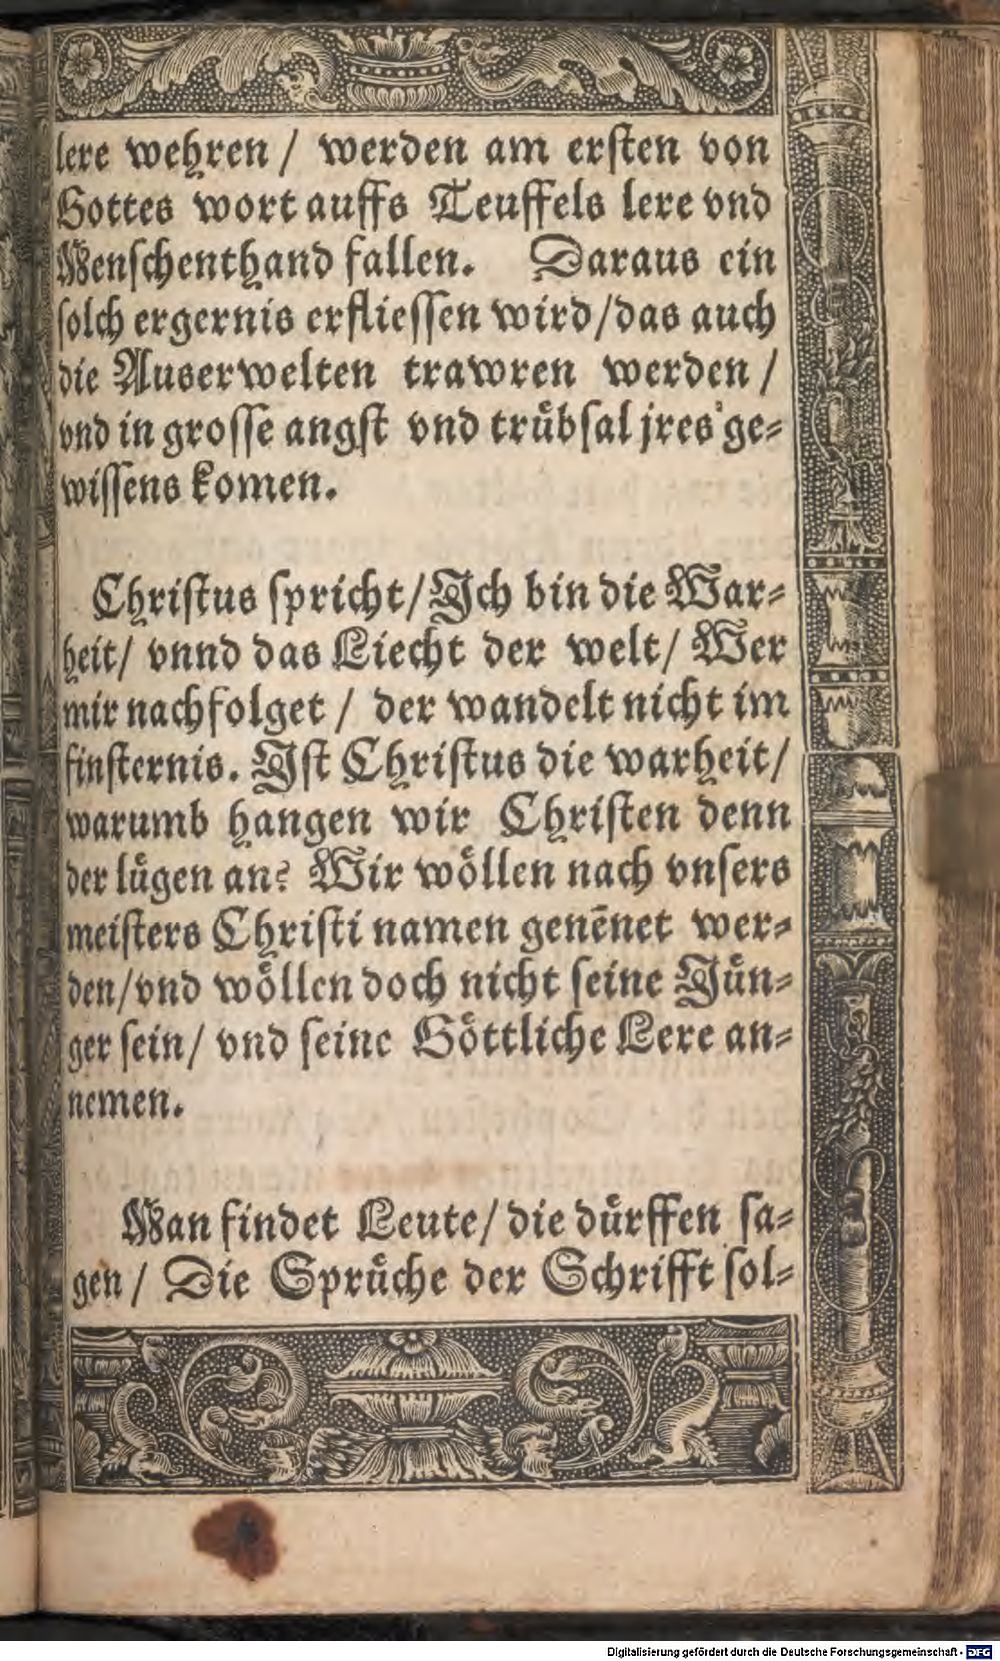 lere wehren / werden am ersten von
Gottes wort auffs Teuffels lere vnd
Menschenthand fallen. Daraus ein
solch ergernis erfliessen wird/das auch
die Auserwelten trawren werden /
vnd in grosse angst vnd trůbsal jres ge⸗
wissens komen.
Christus spricht/Ich bin die War⸗
heit/ vnnd das Liecht der welt/ Wer
mir nachfolget / der wandelt nicht im
finsternis. Ist Christus die warheit/
warumb hangen wir Christen denn
der lůgen an? Wir wöllen nach vnsers
meisters Christi namen genēnet wer⸗
den/vnd wöllen doch nicht seine Jůn⸗
ger sein/ vnd seine Göttliche Lere an⸗
nemen.
Man findet Leute/ die důrffen sa⸗
gen / Die Sprůche der Schrifft sol⸗
Digitalisierung gefördert durch die Deutsche Forschungsgemeinschaft - DFG